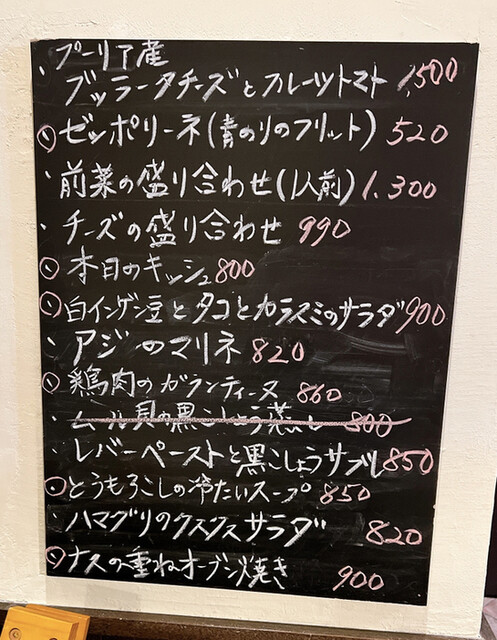 ・プーリア産
ブッラータチーズとフルーツトマト 1,500
・ゼッポリーネ(青のりのフリット) 520
・前菜の盛り合わせ(1人前) 1.300
・チーズの盛り合わせ 990
・本日のキッシュ 800
・白インゲン豆とタコとカラスミのサラダ 900
・アジのマリネ 820
・鶏肉のガランティーヌ 860
・ムール貝の黒こしょう蒸し 800
・レバーペーストと黒こしょうサブレ 850
・とうもろこしの冷たいスープ 850
・ハマグリのクスクスサラダ 820
・ナスの重ねオーブン焼き 900